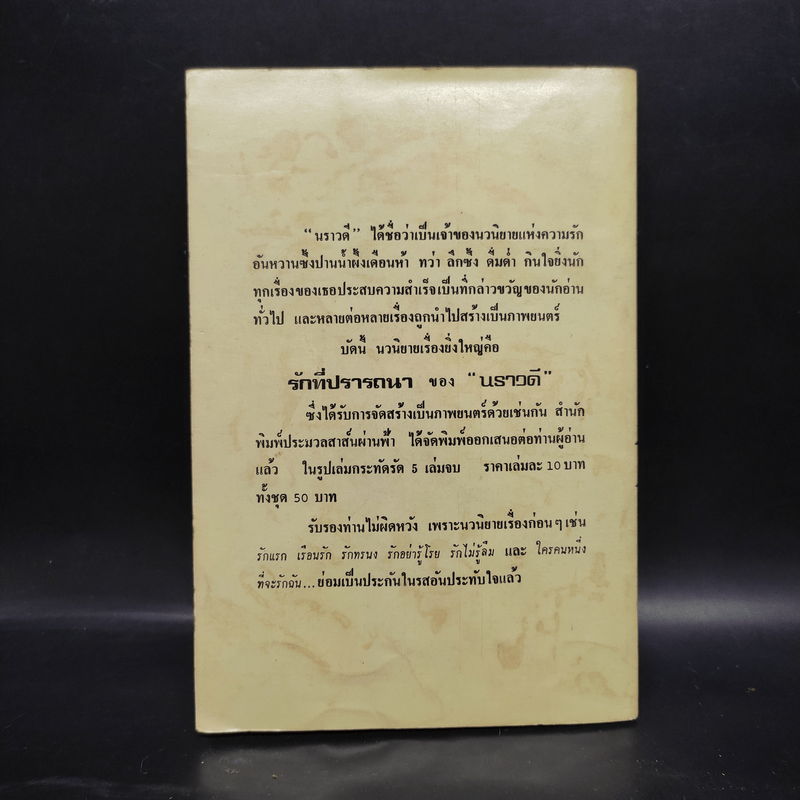 “นราวดี” ได้ชื่อว่าเป็นเจ้าของนวนิยายแห่งความรัก
อันหวานซึ้งปานน้ำผึ้งเดือนห้า ทว่า ลึกซึ้ง ดื่มด่ำ กินใจยิ่งนัก
ทุกเรื่องของเธอประสบความสำเร็จเป็นที่กล่าวขวัญของนักอ่าน
ทั่วไป และหลายต่อหลายเรื่องถูกนำไปสร้างเป็นภาพยนตร์
บัดนี้ นวนิยายเรื่องยิ่งใหญ่คือ
รักที่ปรารถนา ของ “นราวดี”
ซึ่งได้รับการจัดสร้างเป็นภาพยนตร์ด้วยเช่นกัน สำนัก
พิมพ์ประมวลสาส์นผ่านฟ้า ได้จัดพิมพ์ออกเสนอต่อท่านผู้อ่าน
แล้ว ในรูปเล่มกระทัดรัด 5 เล่มจบ ราคาเล่มละ 10 บาท
ทั้งชุด 50 บาท
รับรองท่านไม่ผิดหวัง เพราะนวนิยายเรื่องก่อนๆ เช่น
รักแรก เรือนรัก รักทรนง รักอย่ารู้โรย รักไม่รู้ลืม และ ใครคนหนึ่ง
ที่จะรักฉัน...ย่อมเป็นประกันในรสอันประทับใจแล้ว